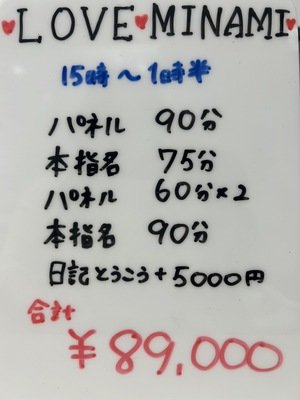 ♥LOVE♥MINAMI♥
15時～1時半
パネル 90分
本指名 75分
パネル 60分×2
本指名 90分
日記とうこう+5000円
合計
¥89,000